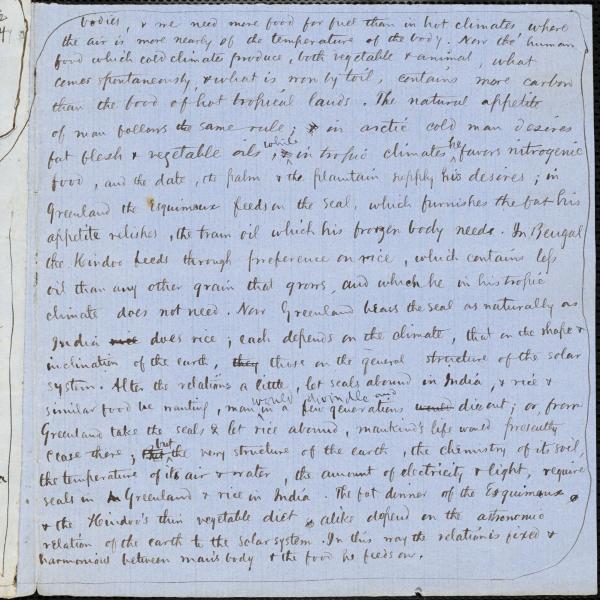 bodies, & we need more food for fuel than in hot climates where
the air is more nearly of the temperature of the body. Now the human
food which cold climates produce, both vegetable & animal, what
comes spontaneously, & what is won by toil, contains more carbon
than the food of hot tropical lands. The natural appetite
of man follows the same rule; in arctic cold man desires
fat flesh & vegetable oils, while in tropic climates he favors nitrogenic
food, and the date, the palm & the plaintain supply his desires; in
Greenland the Esquimaux feeds on the seal, which furnishes the fat his
appetite relishes, the train oil which his frozen body needs. In Bengal
the Hindoo feeds through preference on rice, which contains less
oil than any other grain that grows, and which he in his tropic
climate does not need. Now Greenland bears the seal as naturally as
India rice does rice; each depends on the climate, that on the shape &
inclination of the earth, they those on the general structure of the solar
system. Alter the relations a little, let seals abound in India, & rice &
similar food be wanting, man would dwindle and in a few generations would die out; or, from
Greenland take the seals & let rice abound, mankind's life would presently
cease there; but the very structure of the earth, the chemistry of its soil,
the temperature of its air & water, the amount of electricity & light, require
seals in Greenland & rice in India. The fat dinner of the Esquimaux
& the Hindoo's thin vegetable diet alike depend on the astronomic
relation of the earth to the solar system. In this way the relation is fixed &
harmonious between man's body & the food he feeds on.